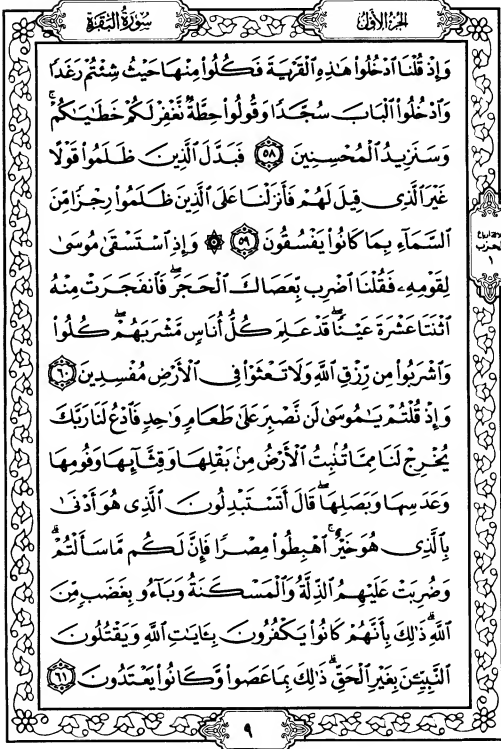 سُورَةُ البَقَرَةِ
الجُزءُ الأَوَّلُ
وَإِذْ قُلْنَا ٱدْخُلُوا۟ هَٰذِهِ ٱلْقَرْيَةَ فَكُلُوا۟ مِنْهَا حَيْثُ شِئْتُمْ رَغَدًا
وَٱدْخُلُوا۟ ٱلْبَابَ سُجَّدًا وَقُولُوا۟ حِطَّةٌ نَّغْفِرْ لَكُمْ خَطَٰيَٰكُمْ ۚ
وَسَنَزِيدُ ٱلْمُحْسِنِينَ ٥٨ فَبَدَّلَ ٱلَّذِينَ ظَلَمُوا۟ قَوْلًا
غَيْرَ ٱلَّذِى قِيلَ لَهُمْ فَأَنزَلْنَا عَلَى ٱلَّذِينَ ظَلَمُوا۟ رِجْزًا مِّنَ
ٱلسَّمَآءِ بِمَا كَانُوا۟ يَفْسُقُونَ ٥٩ ۞ وَإِذِ ٱسْتَسْقَىٰ مُوسَىٰ
لِقَوْمِهِۦ فَقُلْنَا ٱضْرِب بِّعَصَاكَ ٱلْحَجَرَ ۖ فَٱنفَجَرَتْ مِنْهُ
ٱثْنَتَا عَشْرَةَ عَيْنًا ۖ قَدْ عَلِمَ كُلُّ أُنَاسٍ مَّشْرَبَهُمْ ۖ كُلُوا۟
وَٱشْرَبُوا۟ مِن رِّزْقِ ٱللَّهِ وَلَا تَعْثَوْا۟ فِى ٱلْأَرْضِ مُفْسِدِينَ ٦٠
وَإِذْ قُلْتُمْ يَٰمُوسَىٰ لَن نَّصْبِرَ عَلَىٰ طَعَامٍ وَٰحِدٍ فَٱدْعُ لَنَا رَبَّكَ
يُخْرِجْ لَنَا مِمَّا تُنۢبِتُ ٱلْأَرْضُ مِنۢ بَقْلِهَا وَقِثَّآئِهَا وَفُومِهَا
وَعَدَسِهَا وَبَصَلِهَا ۖ قَالَ أَتَسْتَبْدِلُونَ ٱلَّذِى هُوَ أَدْنَىٰ
بِٱلَّذِى هُوَ خَيْرٌ ۚ ٱهْبِطُوا۟ مِصْرًا فَإِنَّ لَكُم مَّا سَأَلْتُمْ ۗ
وَضُرِبَتْ عَلَيْهِمُ ٱلذِّلَّةُ وَٱلْمَسْكَنَةُ وَبَآءُو بِغَضَبٍ مِّنَ
ٱللَّهِ ۗ ذَٰلِكَ بِأَنَّهُمْ كَانُوا۟ يَكْفُرُونَ بِـَٔايَٰتِ ٱللَّهِ وَيَقْتُلُونَ
ٱلنَّبِيِّـۧنَ بِغَيْرِ ٱلْحَقِّ ۗ ذَٰلِكَ بِمَا عَصَوا۟ وَّكَانُوا۟ يَعْتَدُونَ ٦١
الحزب
١
٩